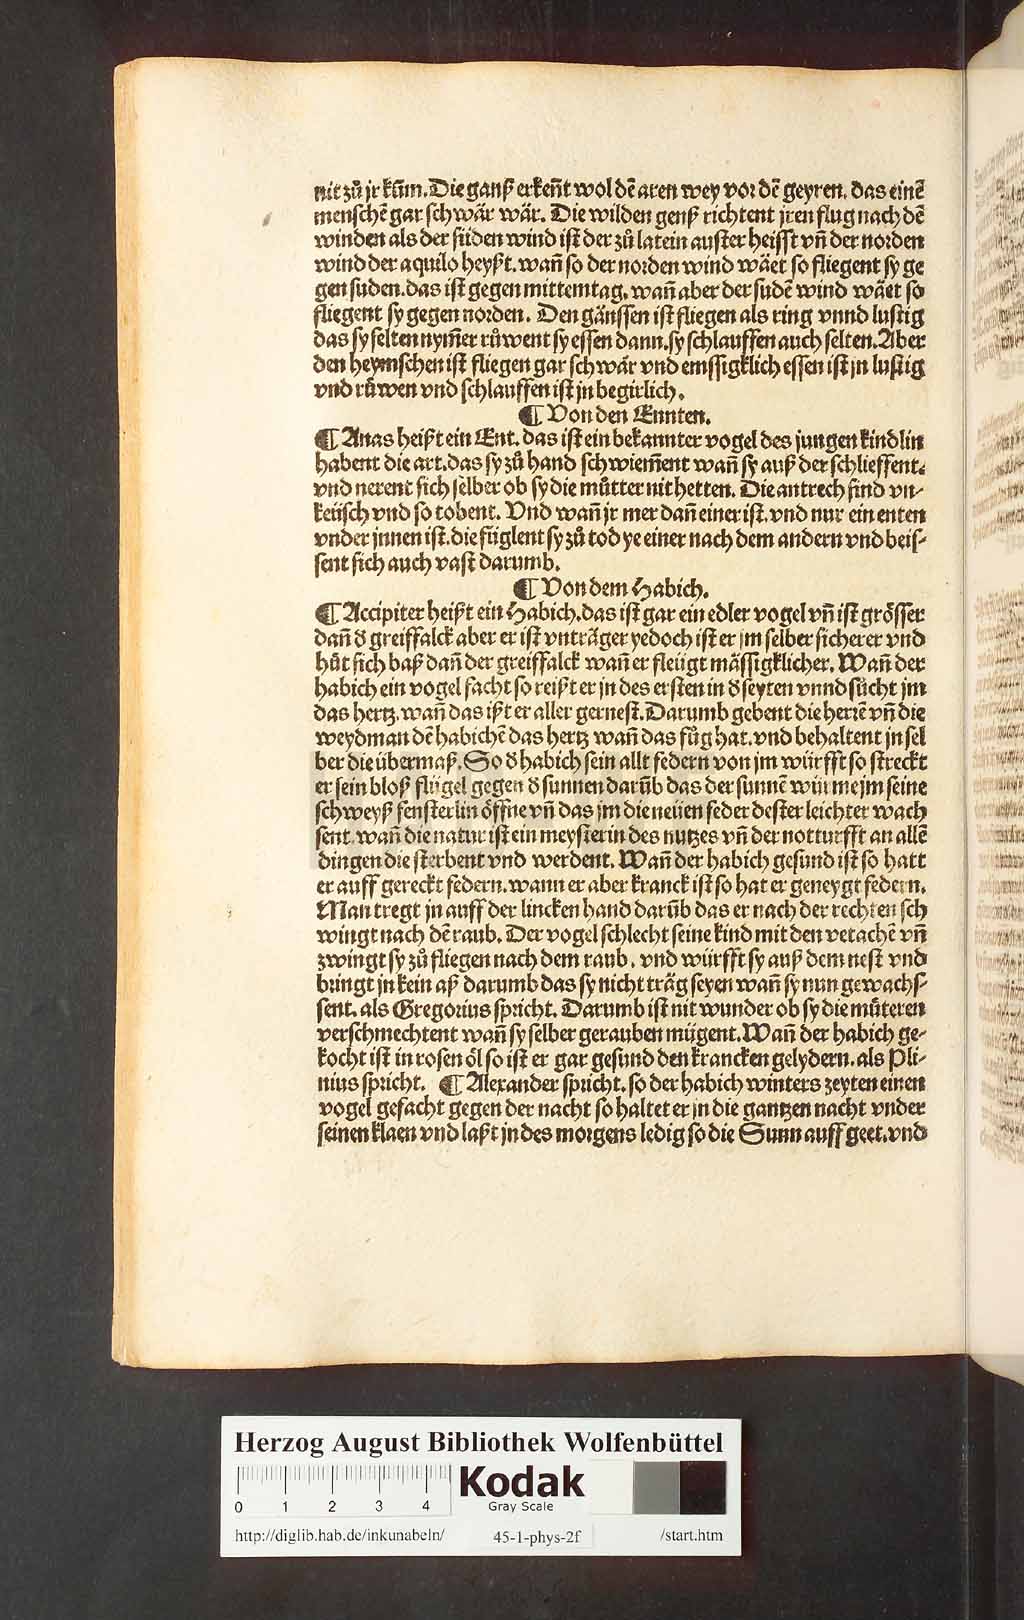 nit zů jr kum̃. Die ganß erkeñt wol dē aren wey vor dē geyren. das einē
menschē gar schwär wär. Die wilden genß richtent jren flug nach dē
winden als der süden wind ist der zů latein auster heisst vñ der norden
wind der aquilo heyßt. wañ so der norden wind wäet so fliegent sy ge
gen suden. das ist gegen mittemtag. wañ aber der sudē wind wäet so
fliegent sy gegen norden. Den gänssen ist fliegen als ring vnnd lustig
das sy selten nym̃er růwent sy essen dann. sy schlauffen auch selten. Aber
den heymschen ist fliegen gar schwär vnd emssigklich essen ist jn lustig
vnd růwen vnd schlauffen ist jn begirlich.
¶ Von den Ennten.
¶ Anas heißt ein Ent. das ist ein bekannter vogel des jungen kindlin
habent die art. das sy zů hand schwiem̃ent wañ sy auß der schlieffent.
vnd nerent sich selber ob sy die můtter nit hetten. Die antrech sind vn-
keüsch vnd so tobent. Vnd wañ jr mer dañ einer ist. vnd nur ein enten
vnder jnnen ist. die füglent sy zů tod ye einer nach dem andern vnd beis-
sent sich auch vast darumb.
¶ Von dem Habich.
¶ Accipiter heißt ein Habich. das ist gar ein edler vogel vñ ist grösser
dañ d̾ greiffalck aber er ist vnträger yedoch ist er jm selber sicherer vnd
hůt sich baß dañ der greiffalck wañ er fleügt mässigklicher. Wañ der
habich ein vogel facht so reißt er jn des ersten in d̾ seyten vnnd sůcht jm
das hertz. wañ das ißt er aller gernest. Darumb gebent die herrē vñ die
weydman dē habichē das hertz wañ das fůg hat. vnd behaltent jn sel
ber die übermaß. So d̾ habich sein allt federn von jm würfft so streckt
er sein bloß flügel gegen d̾ sunnen darūb das der sunnē würme jm seine
schweyß fensterlin öffne vñ das jm die neüen feder dester leichter wach
sent. wañ die natur ist ein meysterin des nutzes vñ der notturfft an allē
dingen die sterbent vnd werdent. Wañ der habich gesund ist so hatt
er auff gereckt federn. wann er aber kranck ist so hat er geneygt federn.
Man tregt jn auff der lincken hand darūb das er nach der rechten sch
wingt nach dē raub. Der vogel schlecht seine kind mit den vetachē vñ
zwingt sy zů fliegen nach dem raub. vnd würfft sy auß dem nest vnd
bringt jn kein aß darumb das sy nicht träg seyen wañ sy nun gewachs-
sent. als Gregorius spricht. Darumb ist nit wunder ob sy die můteren
verschmechtent wañ sy selber gerauben mügent. Wañ der habich ge-
kocht ist in rosen öl so ist er gar gesund den krancken gelydern. als Pli-
nius spricht. ¶ Alexander spricht. so der habich winters zeyten einen
vogel gefacht gegen der nacht so haltet er jn die gantzen nacht vnder
seinen klaen vnd laßt jn des morgens ledig so die Sunn auff geet. vnd
Herzog August Bibliothek Wolfenbüttel
0 1 2 3 4
Kodak
Gray Scale
http://diglib.hab.de/inkunabeln/ 45-1-phys-2f /start.htm